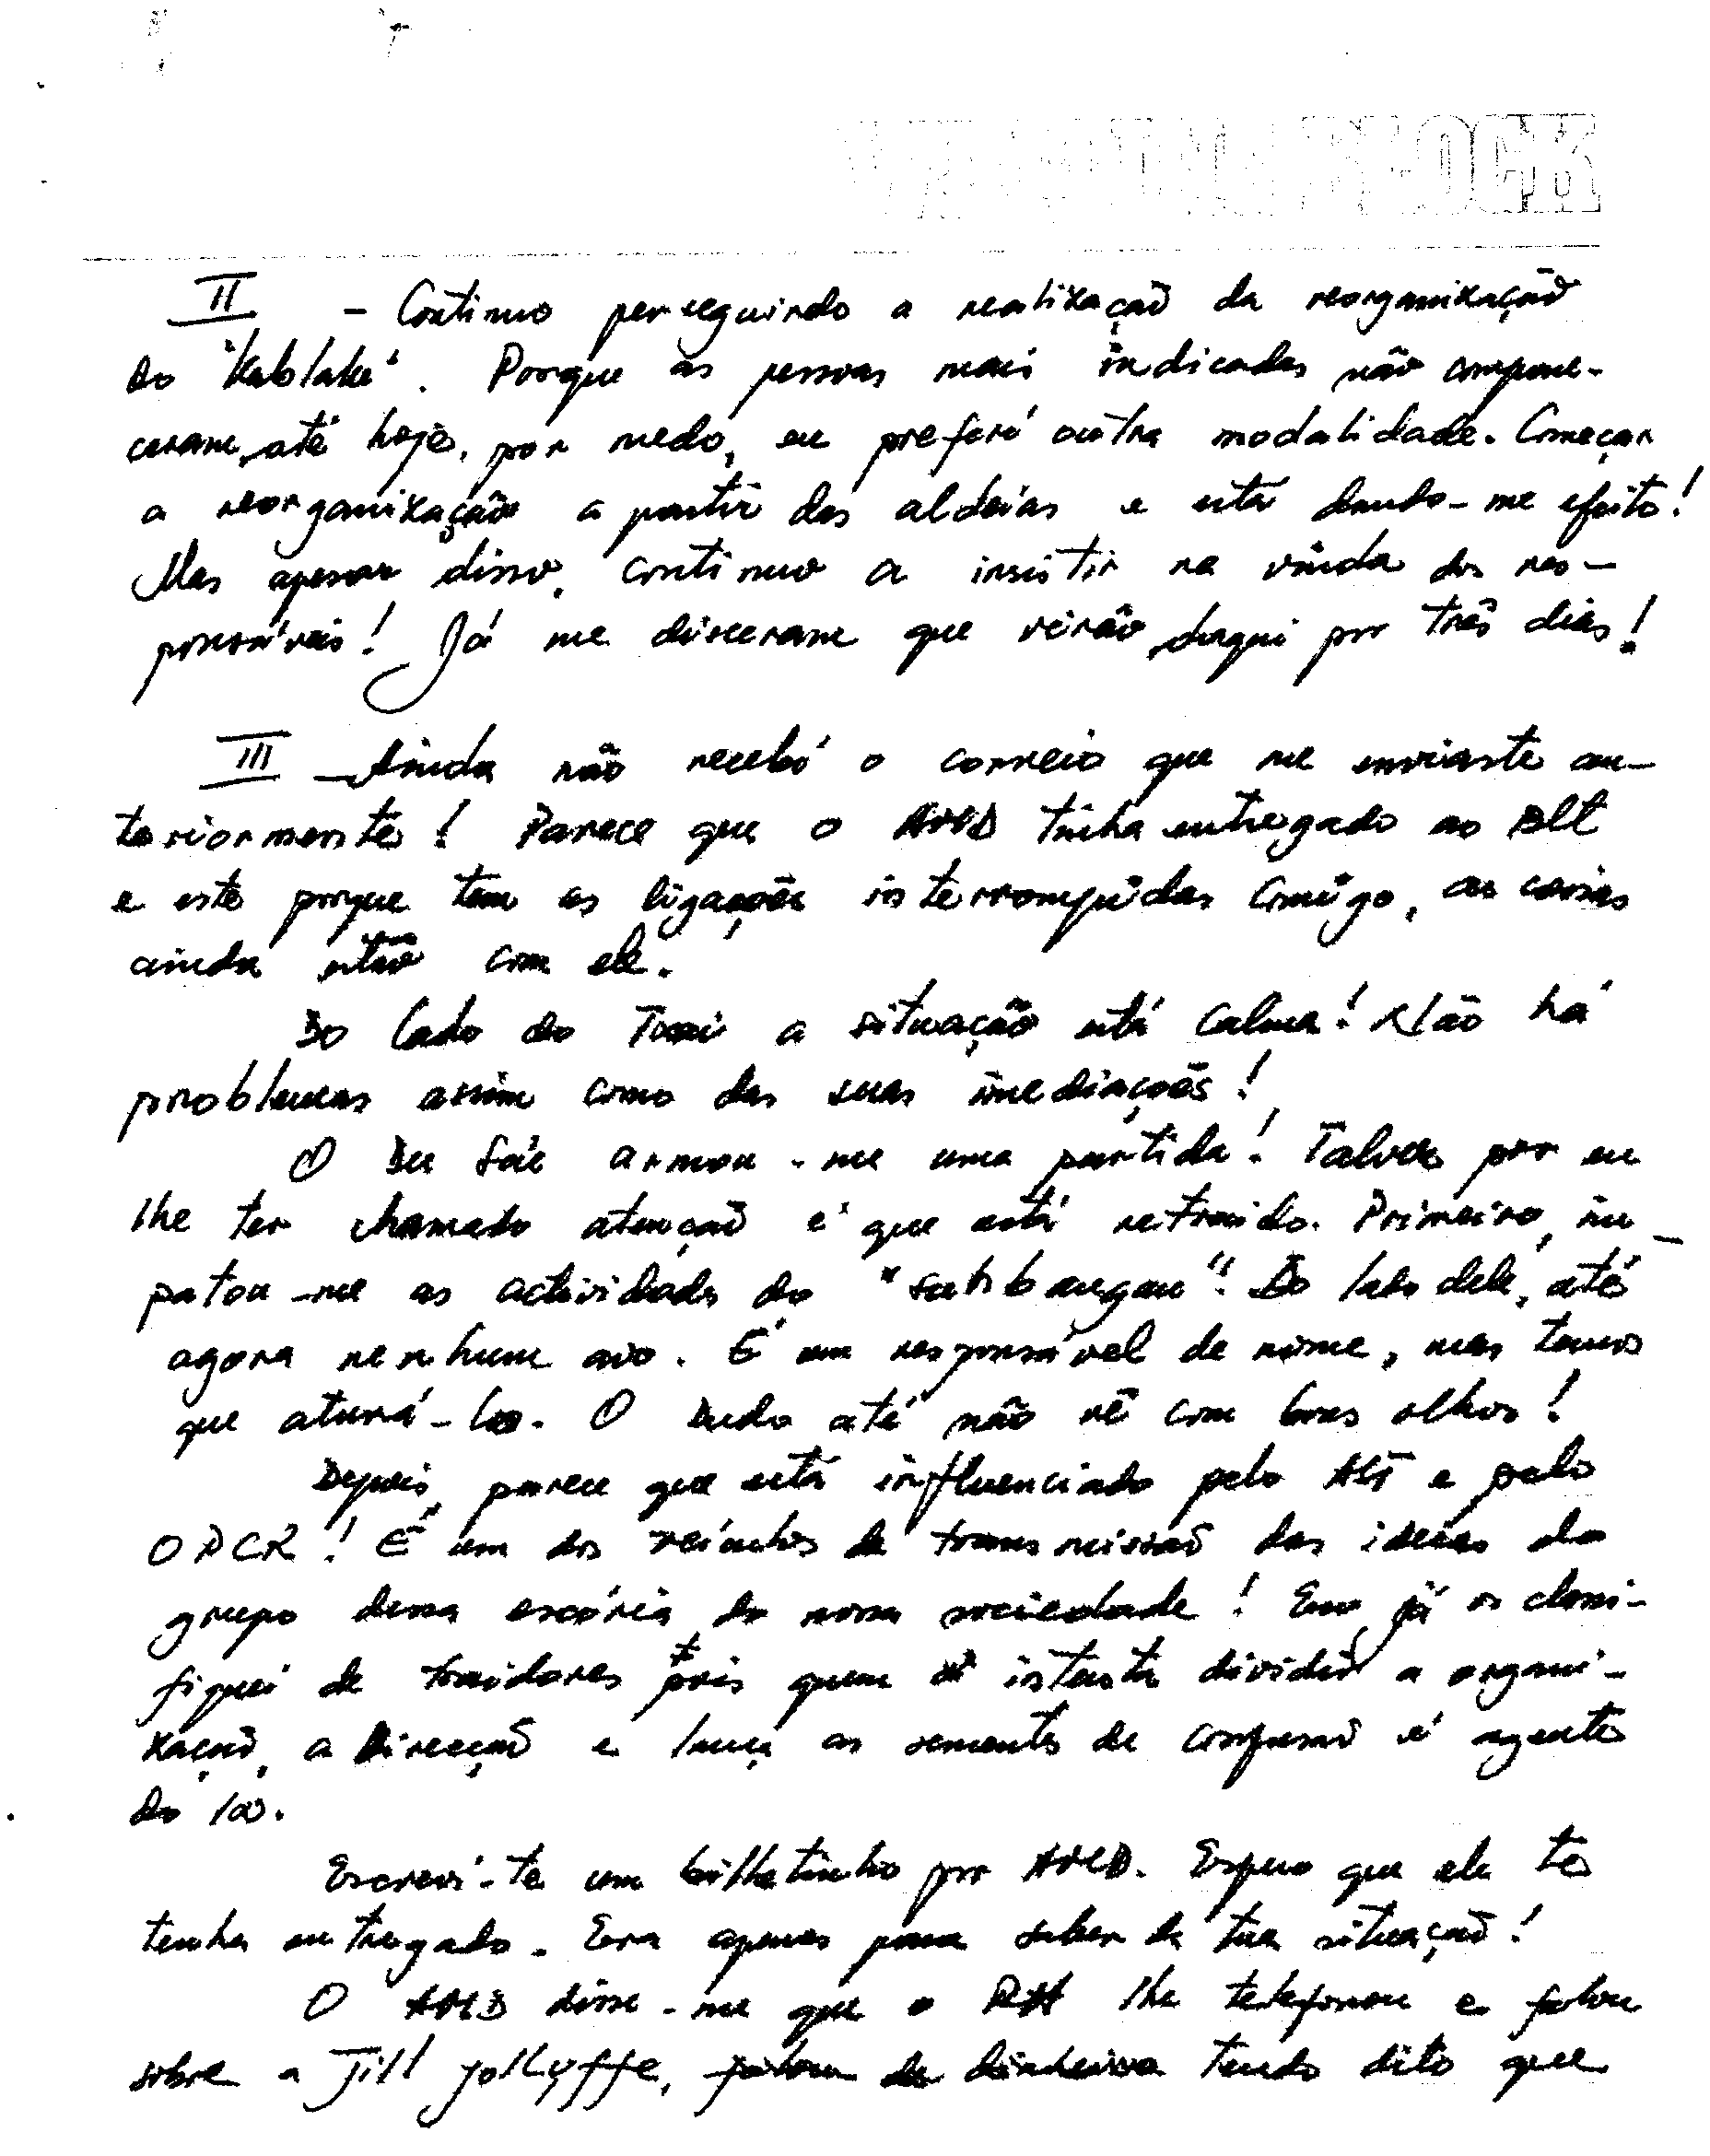 II - Continuo perseguindo a realização da reorganização
do "Kablaki". Porque as pessoas mais indicadas não compare-
ceram, até hoje, por medo, eu preferi outra modalidade. Começar
a reorganização a partir das aldeias e está dando-me efeito!
Mas apesar disso, continuo a insistir na vinda dos res-
ponsáveis! Já me disseram que virão, daqui por três dias!
III - Ainda não recebi o correio que me enviaste an-
teriormente! Parece que o tinha entregado ao
e este porque tem as ligações interrompidas comigo, as coisas
ainda estão com ele.
Do lado do a situação está calma! Não há
problemas assim como das suas imediações!
O armou-me uma partida! Talvez por eu
lhe ter chamado atenção é que está retraido. Primeiro,
-me as actividades do Do lado dele, até
agora nenhum. É um responsável de nome, mas temos
que aturá-lo. O até não vê com bons olhos!
Depois, parece que está influenciado pelo e pelo
! É um dos veículos de transmissão das ideias do
grupo dessa escória da nossa sociedade! Eu já os classi-
fiquei de traidores pois quem intenta dividir a organi-
zação, a Direcção e lança as sementes de confusão é agente
do
Escrevi-te um bilhetinho por. Espero que ele te
tenha entregado. Era apenas para saber da tua situação!
O disse-me que o lhe telefonou e falou
sobre a Jill Jollyffe, falou de dinheiro tendo dito que